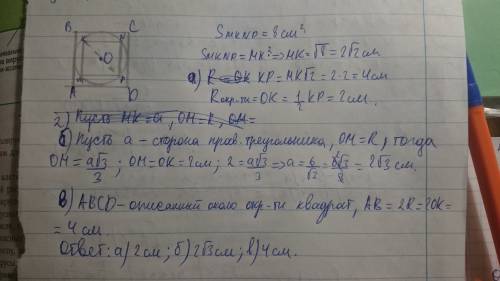 B C
O
A D
Sмкno = 8 см²
Sмкnp = МК² => МК = √8 = 2√2 см
а) R = OK KP = MK√2 = 2·2 = 4см
Rокр-ти = OK = 1/2 KP = 2см.
2) Пусть МК = a, OM = R, OM =
б) Пусть a – сторона прав. треугольника, OM = R, тогда
OM = a√3/3; OM = OK = 2см; 2 = a√3/3 => a = 6/√3 = 6√3/3 = 2√3 см.
в) ABCD – описанный около окр-ти квадрат, AB = 2R = 2OK =
= 4 см
Ответ: а) 2 см; б) 2√3 см; в) 4 см.